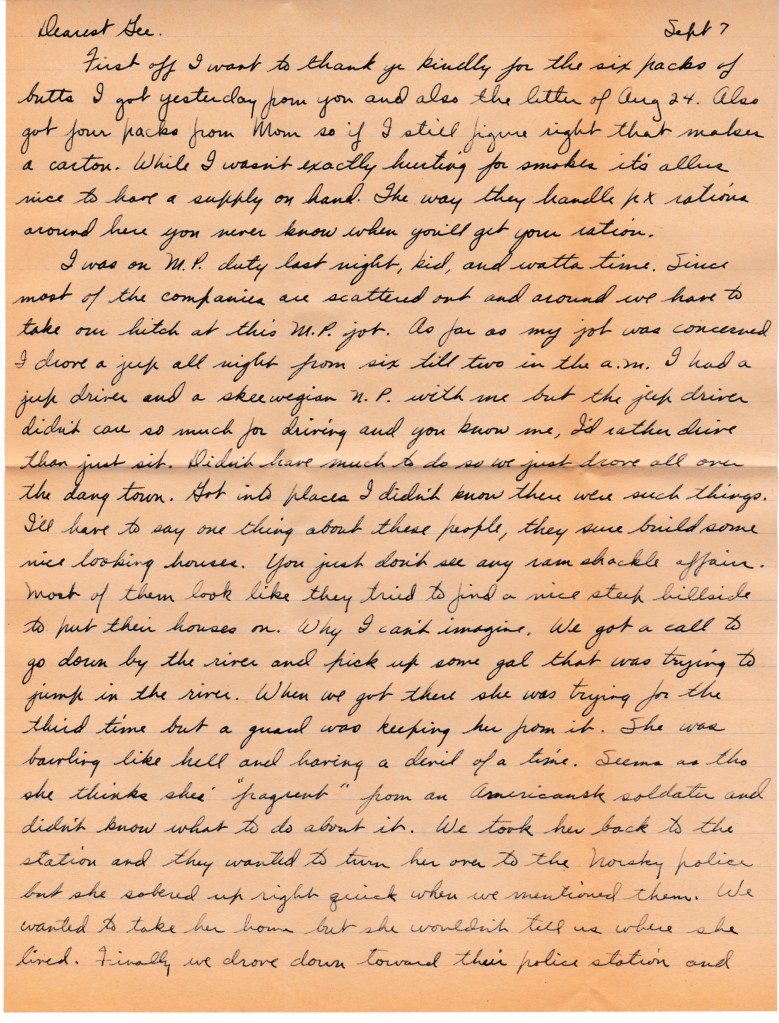 Dearest Gee. Sept 7
First off I want to thank ye kindly for the six packs of
butts I got yesterday from you and also the letter of Aug 24. Also
got four packs from Mom so if I still figure right that makes
a carton. While I wasn't exactly hurting for smokes it's allus
nice to have a supply on hand. The way they handle px rations
around here you never know when you'll get your ration.
I was on M.P. duty last night, kid, and watta time. Since
most of the companies are scattered out and around we have to
take our hitch at this M.P. job. As far as my job was concerned
I drove a jeep all night from six till two in the a.m. I had a
jeep driver and a skeewegian N.P. with me but the jeep driver
didn't care so much for driving and you know me, I'd rather drive
than just sit. Didn't have much to do so we just drove all over
the dang town. Got into places I didn't know there were such things.
I'll have to say one thing about these people, they sure build some
nice looking houses. You just don't see any ram shackle affair.
Most of them look like they tried to find a nice steep hillside
to put their houses on. Why I can't imagine. We got a call to
go down by the river and pick up some gal that was trying to
jump in the river. When we got there she was trying for the
third time but a guard was keeping her from it. She was
bawling like hell and having a devil of a time. Seems as tho
she thinks she's "pragnent" from an Americansk soldater and
didn't know what to do about it. We took her back to the
station and they wanted to turn her over to the Norsky police
but she sobered up right quick when we mentioned them. We
wanted to take her home but she wouldn't tell us where she
lived. Finally we drove down toward their police station and